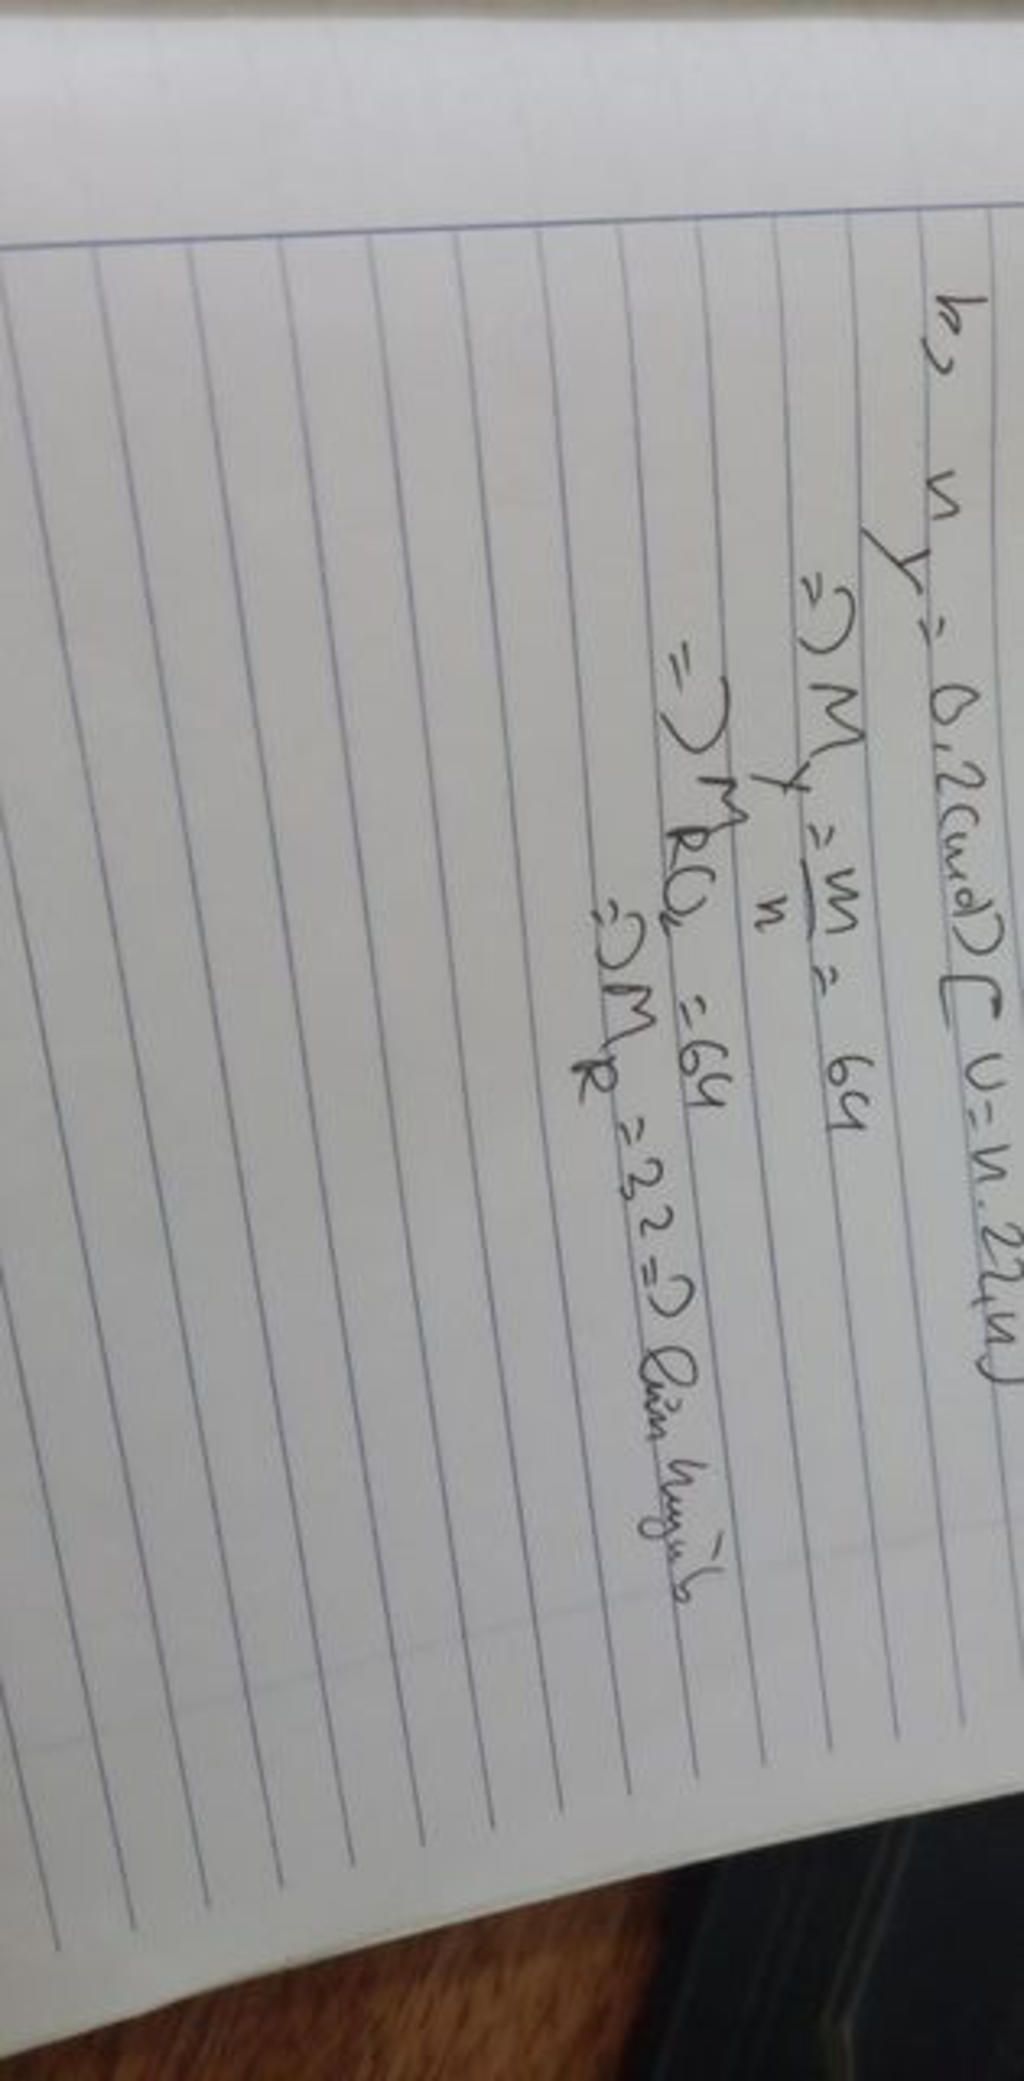 b) n y = 0,2(mol) [ V = n.22,4]
=> M y = m/n = 64
=> M RO2 = 64
=> M R = 32 => lưu huỳnh